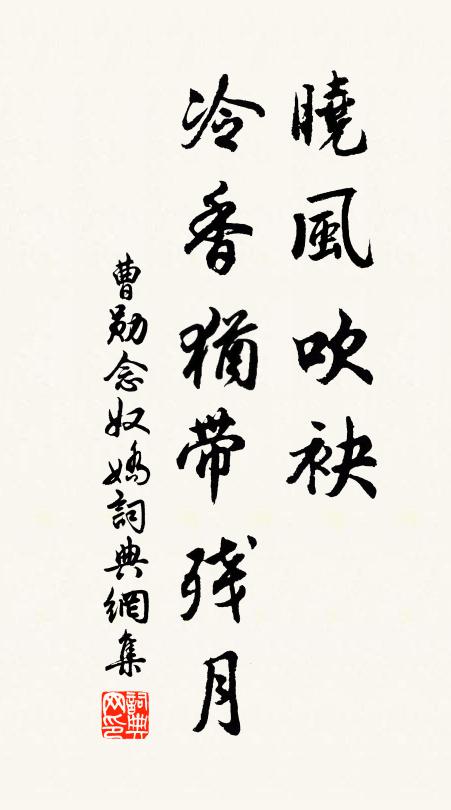 曉風吹袂
冷香猶帶殘月
曹勛念奴嬌詞典網集
詞典網印